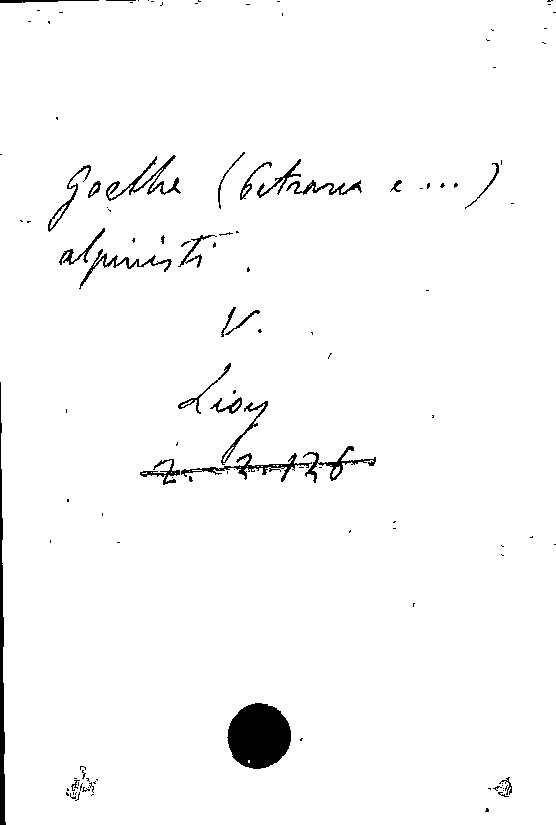 Goethe (Petrarca e ...)
alpinisti.
V.
Lioy
Z. 2.126